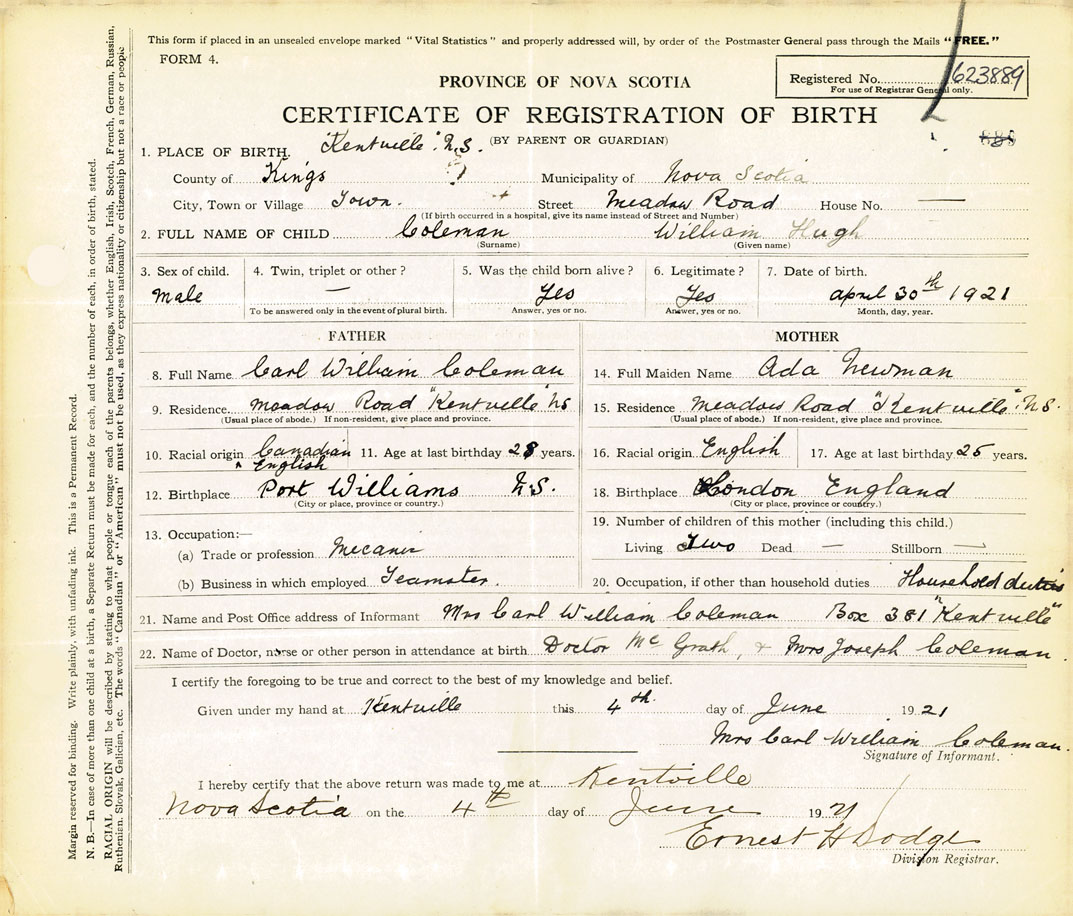 This form if placed in an unsealed envelope marked "Vital Statistics" and properly addressed will, by order of the Postmaster General pass through the Mails "FREE."
FORM 4.
PROVINCE OF NOVA SCOTIA
Registered No. 623889
For use of Registrar General only.
CERTIFICATE OF REGISTRATION OF BIRTH
(BY PARENT OR GUARDIAN)
888
1. PLACE OF BIRTH. "Kentville" N.S.
County of Kings Municipality of Nova Scotia
City, Town or Village Town. Street Meadow Road House No. —
(If birth occurred in a hospital, give its name instead of Street and Number)
2. FULL NAME OF CHILD Coleman William Hugh
(Surname) (Given name)
3. Sex of child. 4. Twin, triplet or other? 5. Was the child born alive? 6. Legitimate? 7. Date of birth.
Male — Yes Yes April 30th 1921
To be answered only in the event of plural birth. Answer, yes or no. Answer, yes or no. Month, day, year.
FATHER MOTHER
8. Full Name Carl William Coleman 14. Full Maiden Name Ada Newman
9. Residence. Meadow Road "Kentville" NS 15. Residence Meadow Road "Kentville" N.S.
(Usual place of abode.) If non-resident, give place and province. (Usual place of abode.) If non-resident, give place and province.
10. Racial origin Canadian English 11. Age at last birthday 28 years. 16. Racial origin English 17. Age at last birthday 25 years.
12. Birthplace Port Williams N.S. 18. Birthplace London England
(City or place, province or country.) (City or place, province or country.)
13. Occupation:— 19. Number of children of this mother (including this child.)
(a) Trade or profession Mecanic Living Two Dead — Stillborn —
(b) Business in which employed Teamster. 20. Occupation, if other than household duties Household duties
21. Name and Post Office address of Informant Mrs Carl William Coleman Box 381 "Kentville"
22. Name of Doctor, nurse or other person in attendance at birth. Doctor McGrath, & Mrs Joseph Coleman.
I certify the foregoing to be true and correct to the best of my knowledge and belief.
Given under my hand at Kentville this 4th day of June 1921
Mrs Carl William Coleman.
Signature of Informant.
I hereby certify that the above return was made to me at Kentville
Nova Scotia on the 4th day of June 1921
Ernest H Dodge
Division Registrar.
Margin reserved for binding. Write plainly, with unfading ink. This is a Permanent Record.
N. B.—In case of more than one child at a birth, a Separate Return must be made for each, and the number of each, in order of birth, stated.
RACIAL ORIGIN will be described by stating to what people or tongue each of the parents belongs, whether English, Irish, Scotch, French, German, Russian,
Ruthenian, Slovak, Galician, etc. The words "Canadian" or "American" must not be used, as they express nationality or citizenship but not a race or people